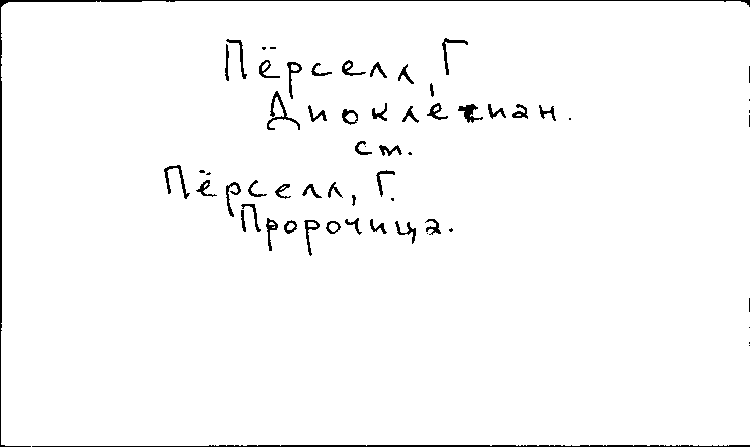 Пёрселл, Г
Диоклетиан.
ст.
Пёрселл, Г.
Пророчица.